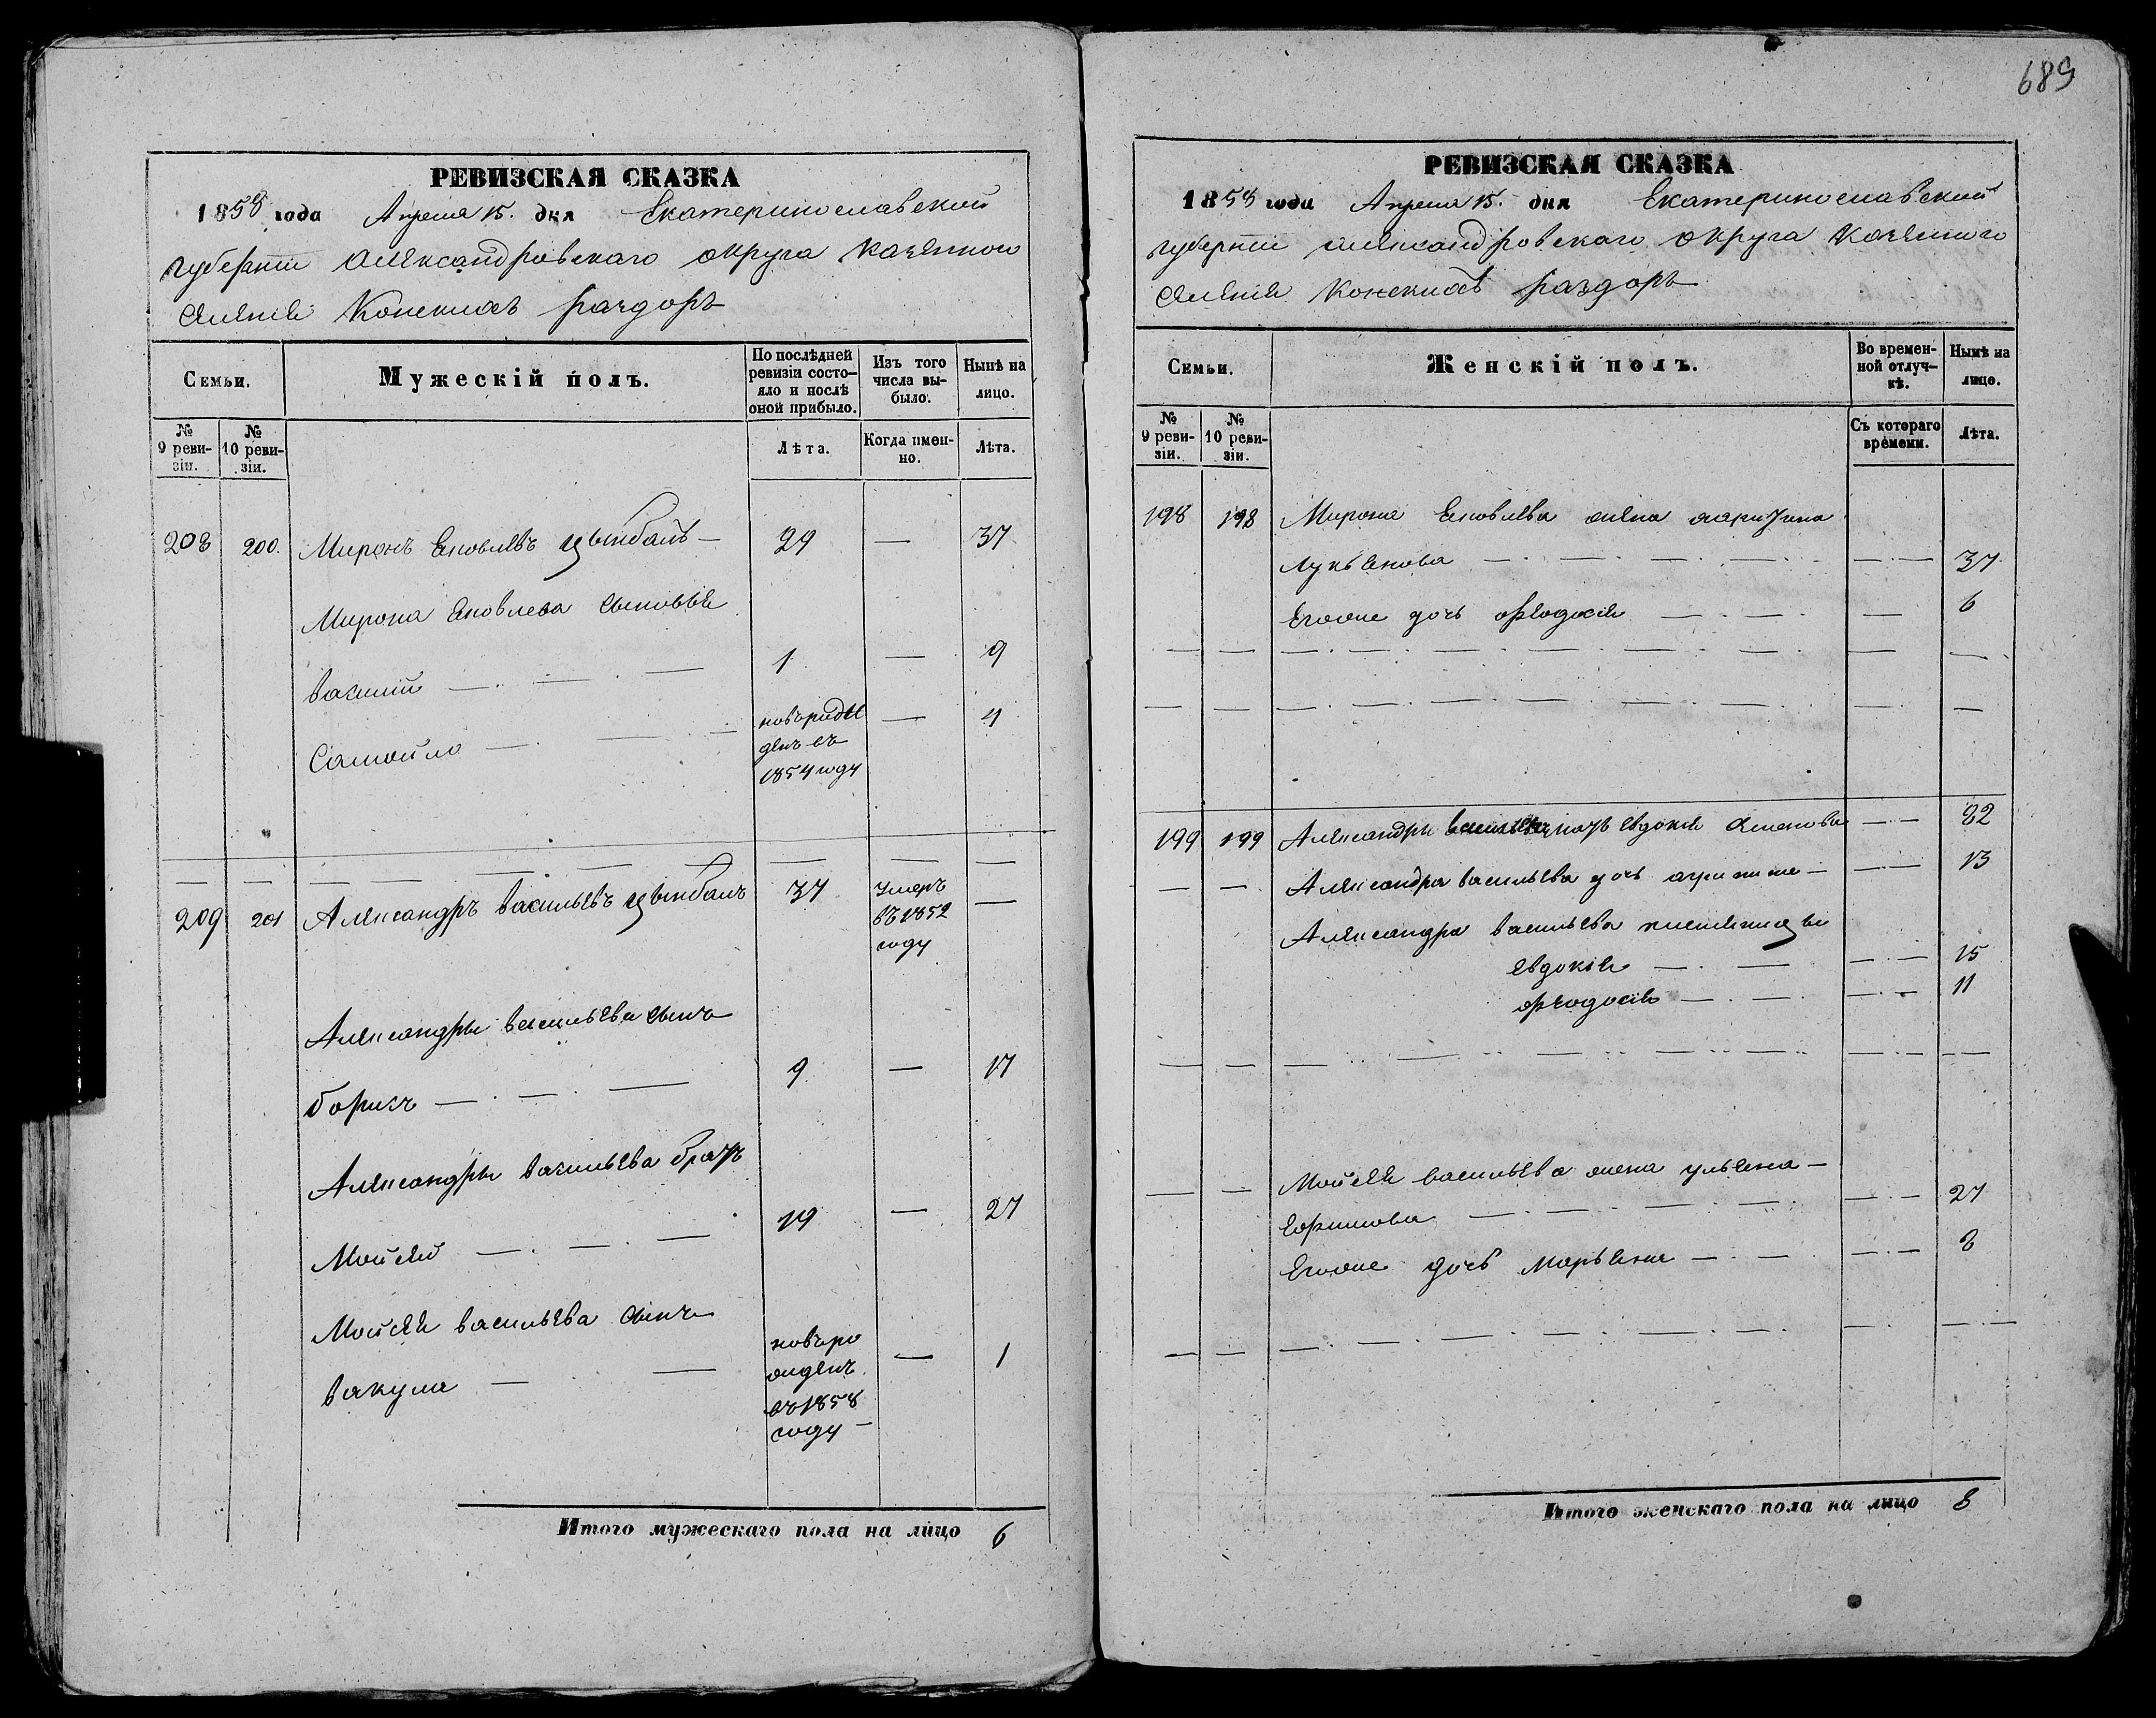 РЕВИЗСКАЯ СКАЗКА
1858 года Апреля 15. дня Екатеринославской
губернiи Александровскаго округа казенного
селенiя Конскихъ раздоръ
Семьи.
Мужескій полъ.
По послѣдней ревизіи состо-
яло и послѣ
оной прибыло.
Изъ того
числа вы-
было.
Нынѣ на
лицо.
№
9 реви-
зіи.
№
10 реви-
зіи.
Лѣта.
Когда имен-
но.
Лѣта.
208 200. Миронъ Яковлевъ цымбалъ — 29 — 37
Мирона Яковлева сыновья
василий — 1 — 9
Самойло — новорож
денъ въ
1854 году — 4
209 201 Александръ васильевъ цымбалъ 37 Умеръ
въ 1852
году —
Александры васильева сынъ
борисъ — 9 — 17
Александры васильева братъ
Мойсей — 19 — 27
Мойсея васильева сынъ
вакула — новоро
жденъ
въ 1858
году — — 1
Итого мужескаго пола на лицо 6
689
РЕВИЗСКАЯ СКАЗКА
1858 года Апреля 15. дня Екатеринославской
губернiи Александровскаго округа казенного
селенiя Конскихъ раздоръ
Семьи.
Женскій полъ.
Во времен-
ной отлуч-
кѣ.
Нынѣ на
лицо.
№
9 реви-
зіи.
№
10 реви-
зіи.
Съ котораго
времени.
Лѣта.
198 198 Мирона Яковлева жена
лукьянова — 37
Егоже дочь феодосiя — 6
199 199 Александры евдокiя — 32
Александра васильева дочь — 13
Александра васильева племянницы
евдокiя — 15
феодосiя — 11
Мойсея васильева жена ульяна —
Ефимова — 27
Егоже дочь марьяна — 3
Итого женскаго пола на лицо 8